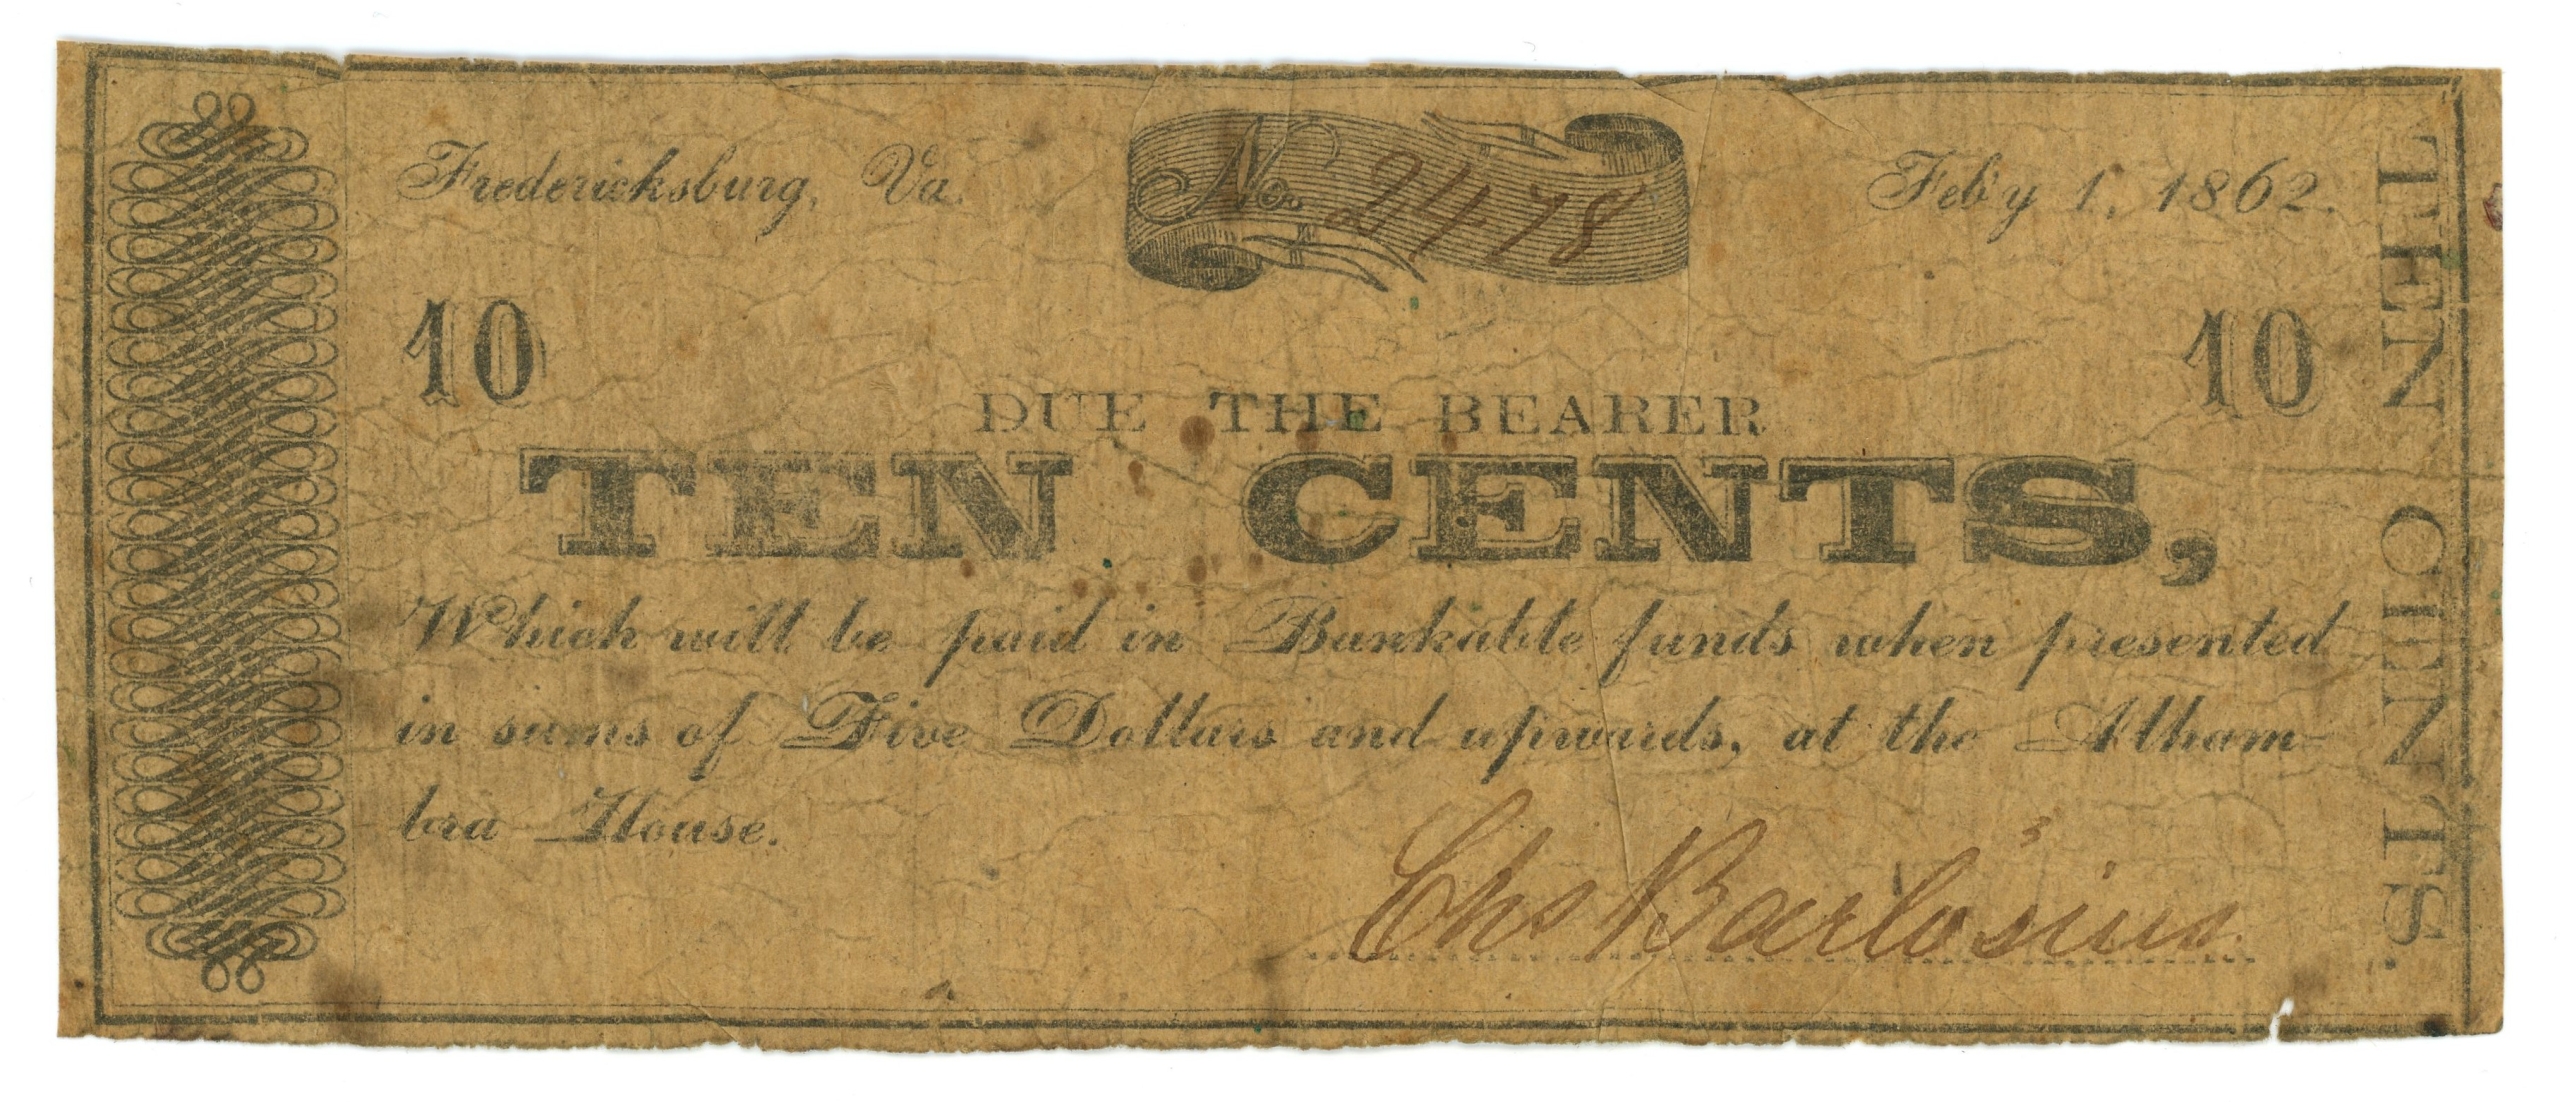 Fredericksburg, Va. No. 2478 Feb'y 1, 1862.
10 10
DUE THE BEARER
TEN CENTS,
Which will be paid in Bankable funds when presented
in sums of Five Dollars and upwards, at the Alham-
bra House.
Chs Barlosius
TEN CENTS.